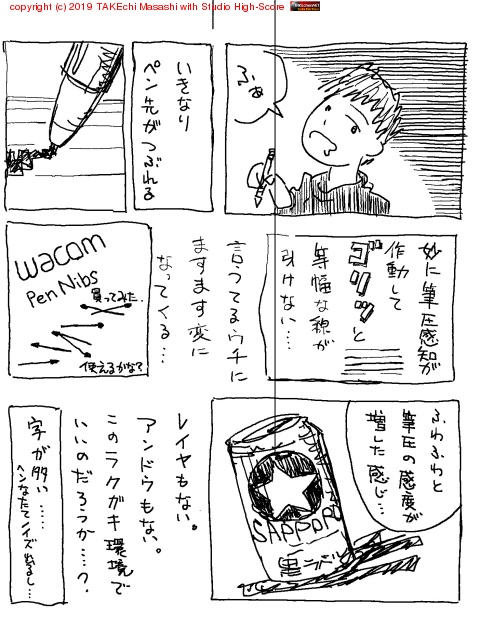 copyright (c) 2019 TAKEchi Masashi with Studio High-Score
ふぁ
いきなり
ペン先が
つぶれる
妙に筆圧感知が
作動して
ゴリッと
等幅な線が
引けない…
言うてるウチに
ますます変に
なってくる…
wacom
Pen Nibs
買ってみた.
使えるかな?
ふわふわと
筆圧の感度が
増した感じ…
SAPPORO
黒ラベル
レイヤもない。
アンドウもない。
このラクガキ環境で
いいのだろうか……?
字が多い……
ヘンなたてノイズ出るし…